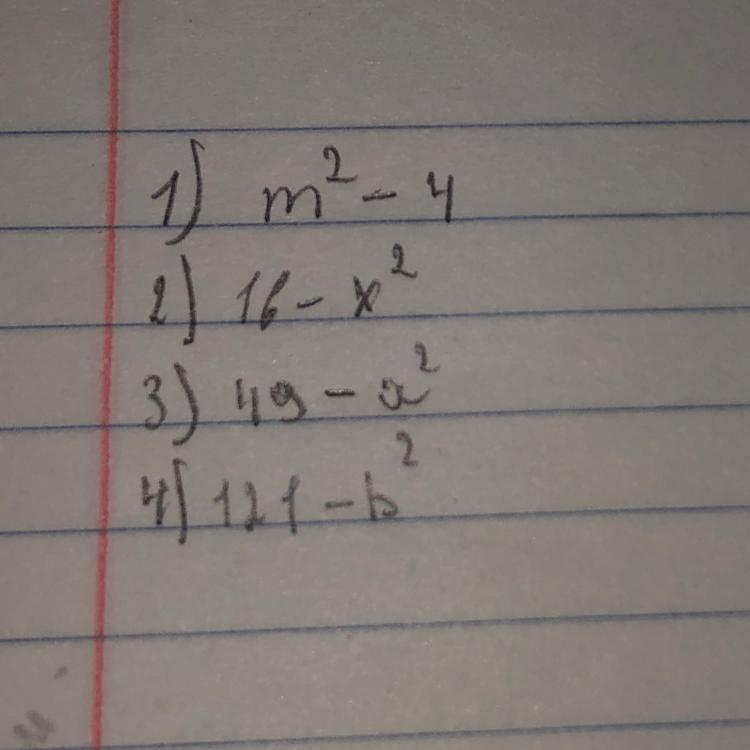 1) m² - 4
2) 16 - x²
3) 49 - a²
4) 121 - b²